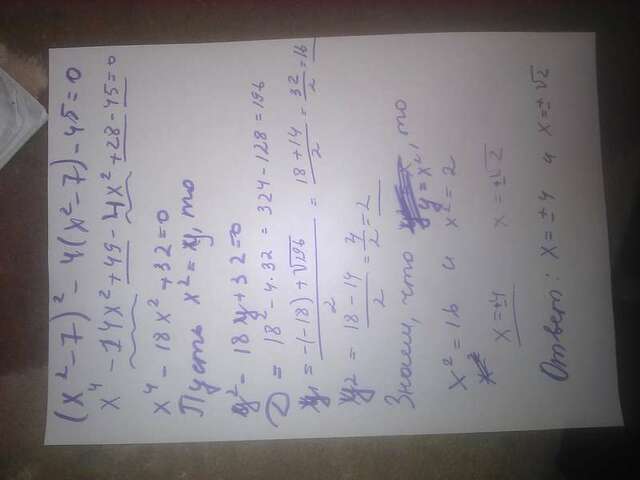 (x² - 7)² - 4(x² - 7) - 45 = 0
x⁴ - 14x² + 49 - 4x² + 28 - 45 = 0
x⁴ - 18x² + 32 = 0
Пусть x² = y, то
y² - 18y + 32 = 0
D = 18² - 4·32 = 324 - 128 = 196
y1 = -(-18) + √196 / 2 = 18 + 14 / 2 = 32 / 2 = 16
y2 = 18 - 14 / 2 = 4 / 2 = 2
Знаем, что y = x², то
x² = 16 и x² = 2
x = ±4 x = ±√2
Ответ: x = ±4 и x = ±√2